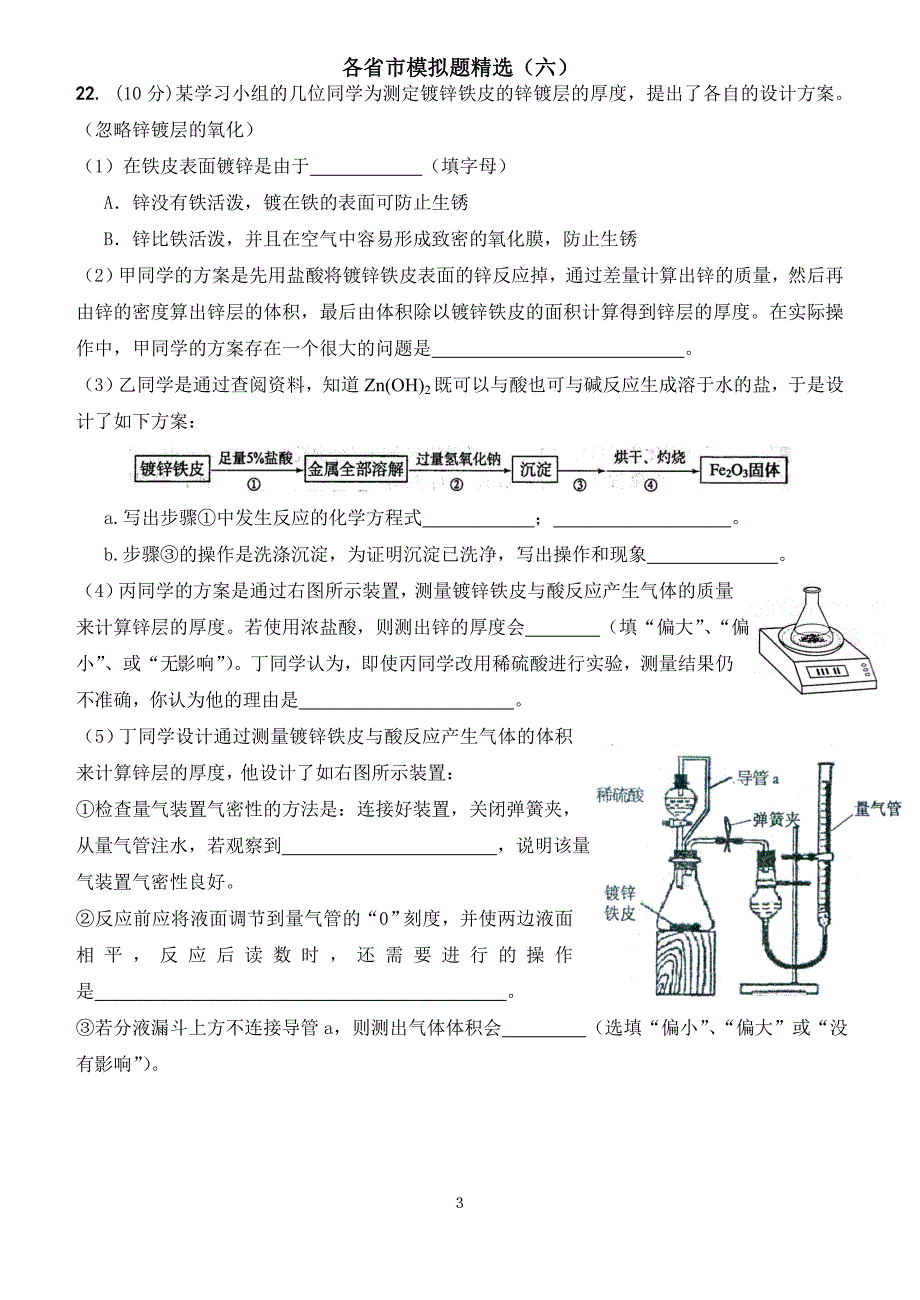 各省市模拟题精选（六）
22. (10分)某学习小组的几位同学为测定镀锌铁皮的锌镀层的厚度，提出了各自的设计方案。
（忽略锌镀层的氧化）
（1）在铁皮表面镀锌是由于____________（填字母）
A．锌没有铁活泼，镀在铁的表面可防止生锈
B．锌比铁活泼，并且在空气中容易形成致密的氧化膜，防止生锈
（2）甲同学的方案是先用盐酸将镀锌铁皮表面的锌反应掉，通过差量计算出锌的质量，然后再
由锌的密度算出锌层的体积，最后由体积除以镀锌铁皮的面积计算得到锌层的厚度。在实际操
作中，甲同学的方案存在一个很大的问题是___________________________。
（3）乙同学是通过查阅资料，知道Zn(OH)₂既可以与酸也可与碱反应生成溶于水的盐，于是设
计了如下方案：
镀锌铁皮 足量5%盐酸 ① 金属全部溶解 过量氢氧化钠 ② 沉淀 ③ 烘干、灼烧 ④ Fe₂O₃固体
a.写出步骤①中发生反应的化学方程式____________；___________________。
b.步骤③的操作是洗涤沉淀，为证明沉淀已洗净，写出操作和现象______________。
（4）丙同学的方案是通过右图所示装置，测量镀锌铁皮与酸反应产生气体的质量
来计算锌层的厚度。若使用浓盐酸，则测出锌的厚度会________（填“偏大”、“偏
小”、或“无影响”）。丁同学认为，即使丙同学改用稀硫酸进行实验，测量结果仍
不准确，你认为他的理由是_______________________。
（5）丁同学设计通过测量镀锌铁皮与酸反应产生气体的体积
来计算锌层的厚度，他设计了如右图所示装置：
①检查量气装置气密性的方法是：连接好装置，关闭弹簧夹，
从量气管注水，若观察到_______________________，说明该量
气装置气密性良好。
②反应前应将液面调节到量气管的“0”刻度，并使两边液面
相平，反应后读数时，还需要进行的操作
是____________________________________________。
稀硫酸
导管a
弹簧夹
量气管
镀锌
铁皮
③若分液漏斗上方不连接导管a，则测出气体体积会_________（选填“偏小”、“偏大”或“没
有影响”）。
3